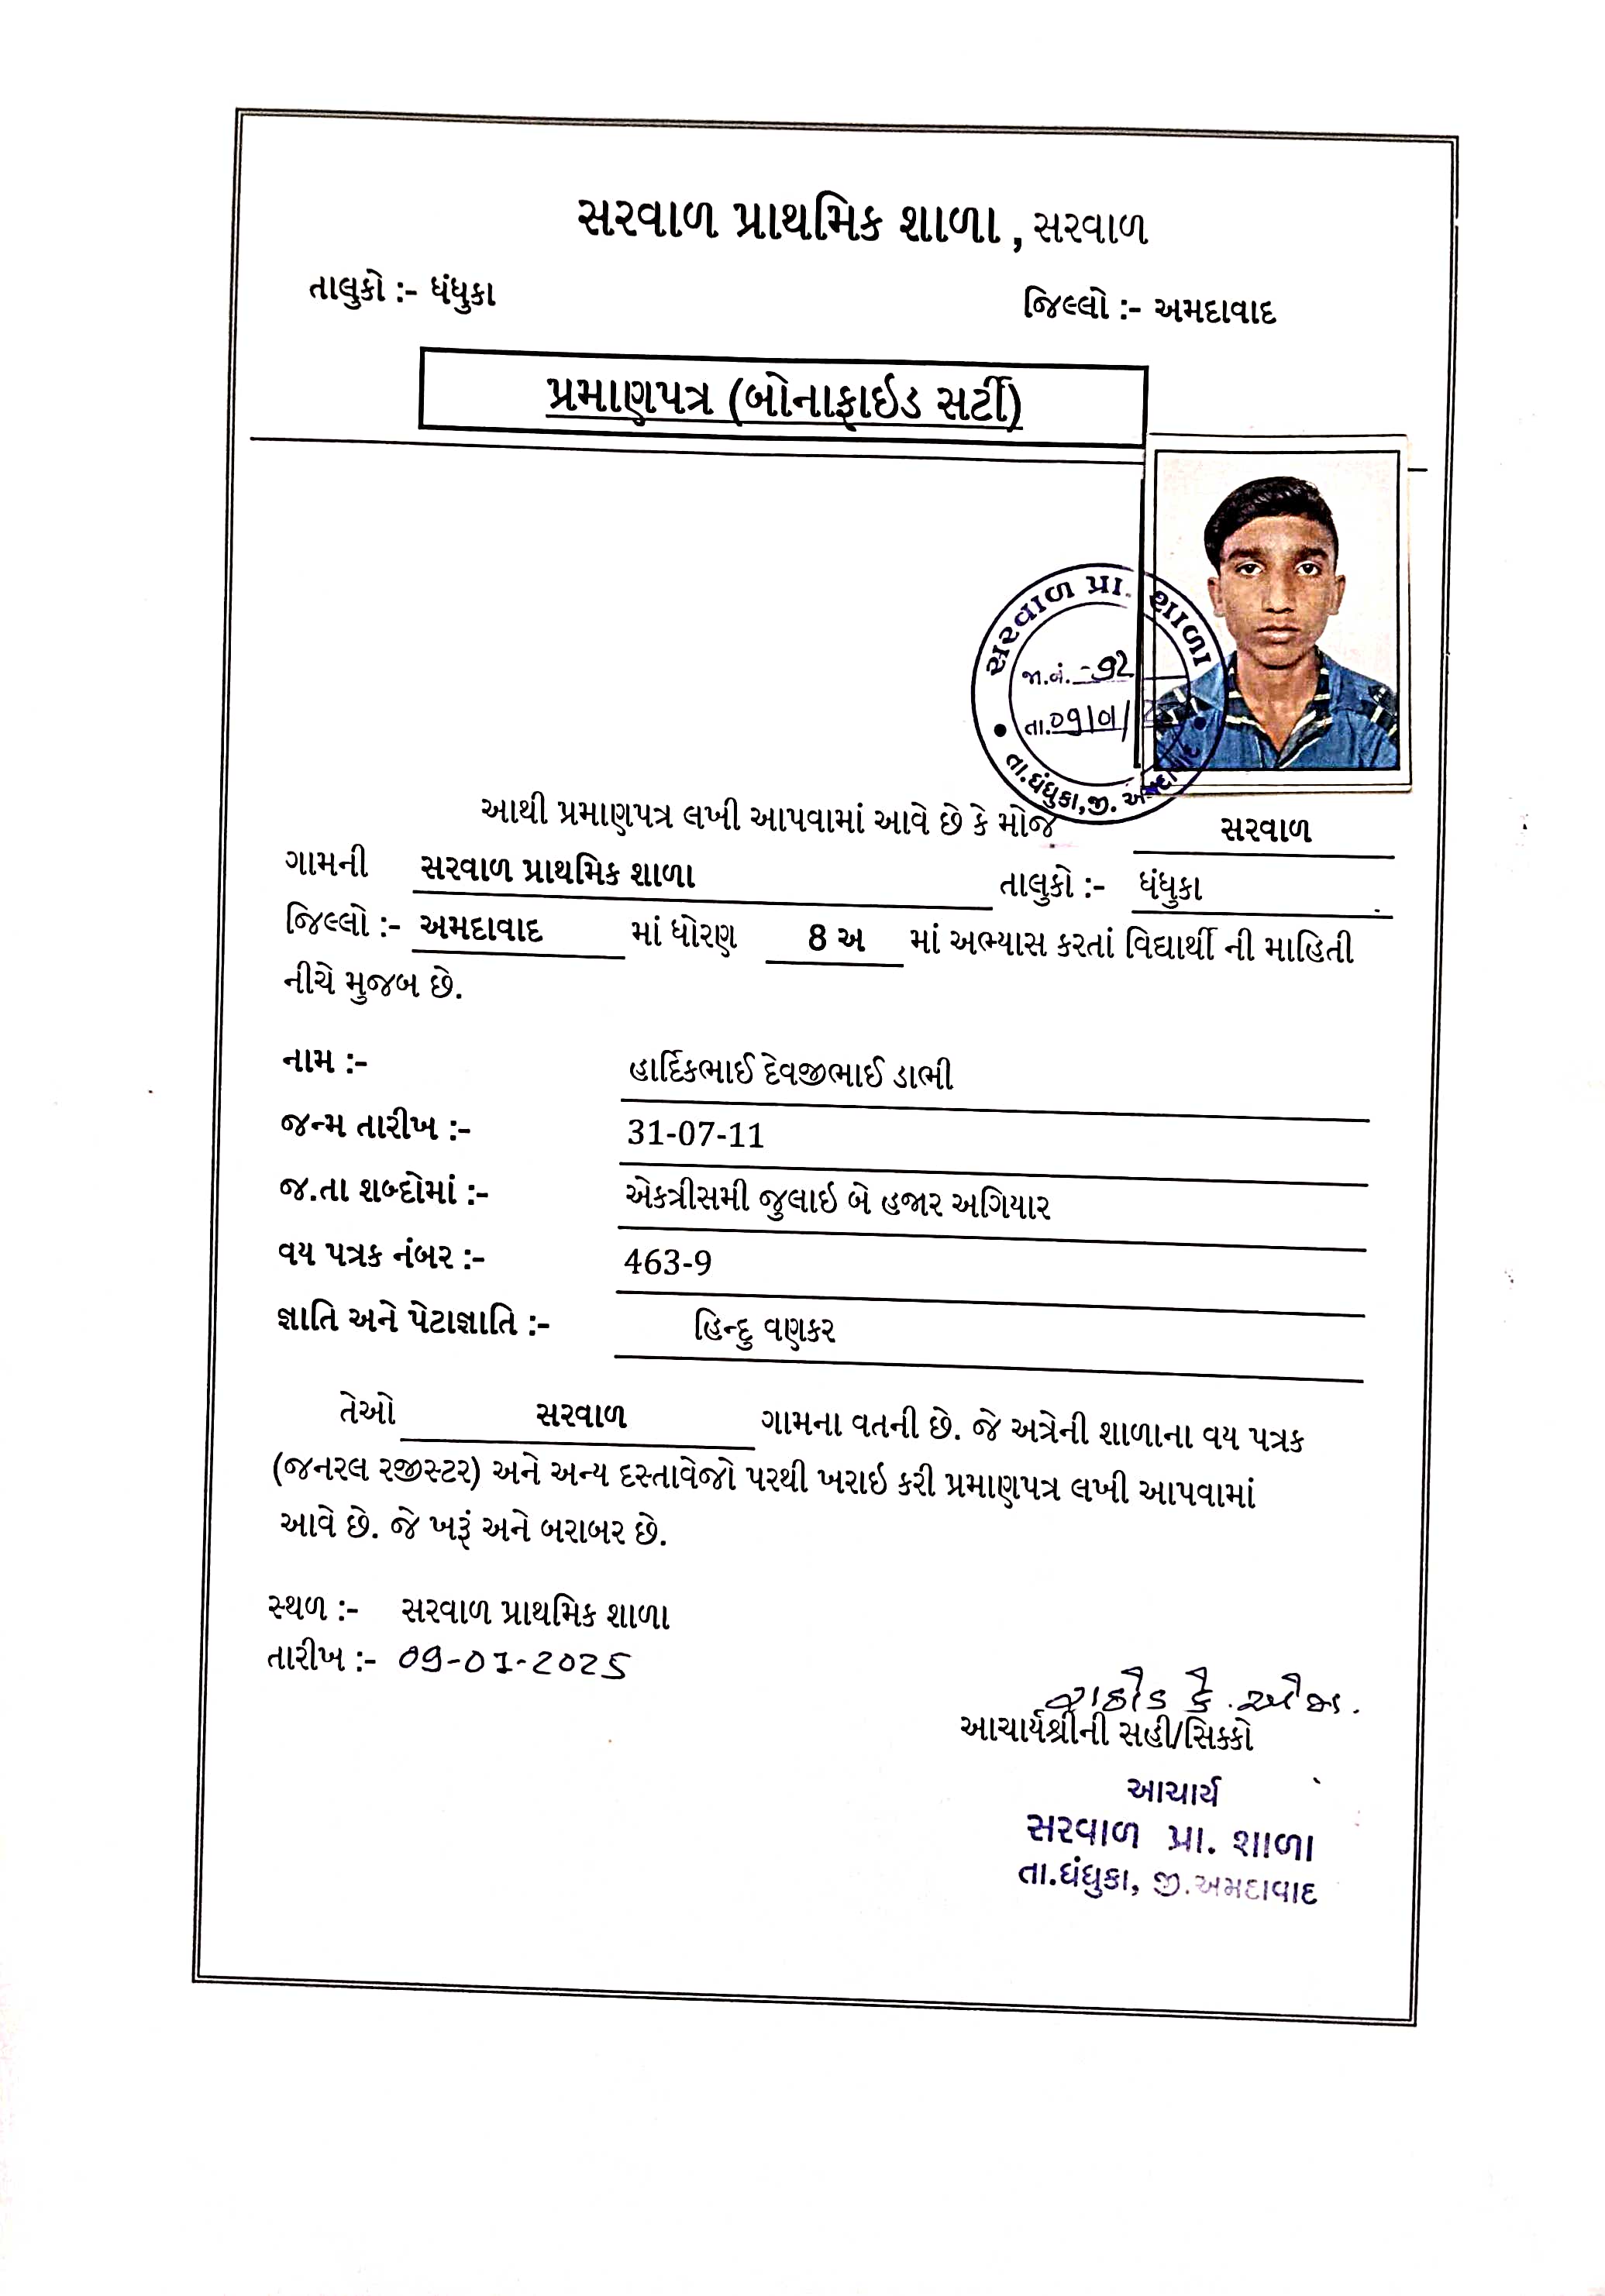 સરવાળ પ્રાથમિક શાળા , સરવાળ
તાલુકો :- ધંધુકા જિલ્લો :- અમદાવાદ
પ્રમાણપત્ર (બોનાફાઇડ સર્ટી)
સરવાળ પ્રા. શાળા
જા.નં. - 92
તા. 09/01/
તા.ધંધુકા,જી. અમદાવાદ
આથી પ્રમાણપત્ર લખી આપવામાં આવે છે કે મોજે સરવાળ
ગામની સરવાળ પ્રાથમિક શાળા તાલુકો :- ધંધુકા
જિલ્લો :- અમદાવાદ માં ધોરણ 8 અ માં અભ્યાસ કરતાં વિદ્યાર્થી ની માહિતી
નીચે મુજબ છે.
નામ :- હાર્દિકભાઈ દેવજીભાઈ ડાભી
જન્મ તારીખ :- 31-07-11
જ.તા શબ્દોમાં :- એકત્રીસમી જુલાઇ બે હજાર અગિયાર
વય પત્રક નંબર :- 463-9
જ્ઞાતિ અને પેટાજ્ઞાતિ :- હિન્દુ વણકર
તેઓ સરવાળ ગામના વતની છે. જે અત્રેની શાળાના વય પત્રક
(જનરલ રજીસ્ટર) અને અન્ય દસ્તાવેજો પરથી ખરાઇ કરી પ્રમાણપત્ર લખી આપવામાં
આવે છે. જે ખરૂં અને બરાબર છે.
સ્થળ :- સરવાળ પ્રાથમિક શાળા
તારીખ :- 09-01-2025
રાઠોડ કે. એમ.
આચાર્યશ્રીની સહી/સિક્કો
આચાર્ય
સરવાળ પ્રા. શાળા
તા.ધંધુકા, જી.અમદાવાદ